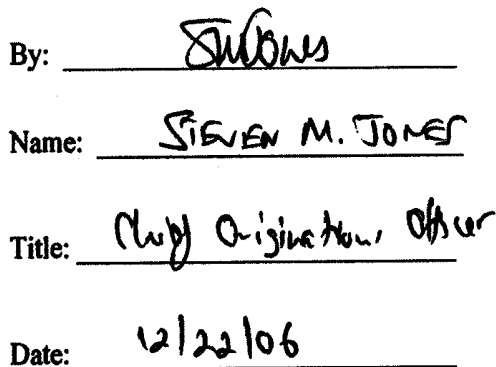 By: SMJones
Name: STEVEN M. JONES
Title: Chief Originations Officer
Date: 12/22/06